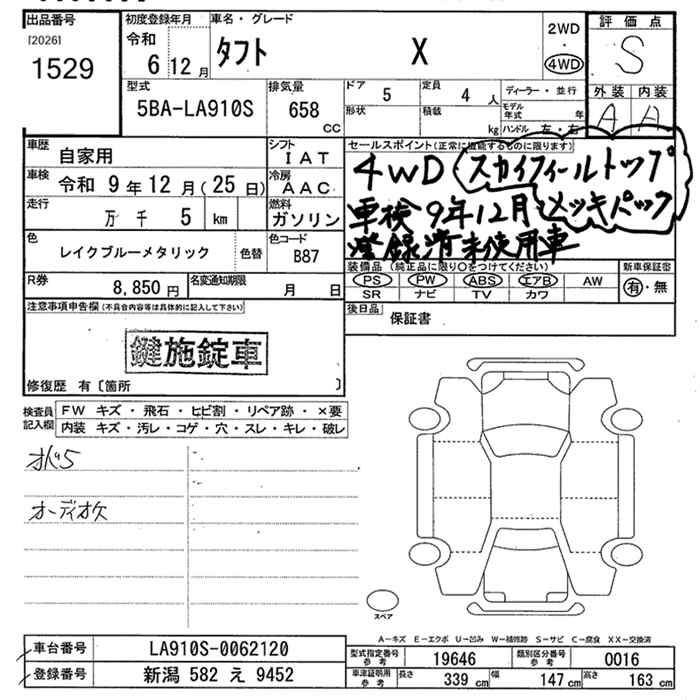 出品番号 初度登録年月 車名・グレード 評価点
[2026] 令和 2WD・4WD
1529 6 12月 タフト X S
型式 排気量 ドア 定員 ディーラー・並行 外装 内装
5BA-LA910S 658 CC 5 4人 A A
形状 積載 kg モデル年式 年
ハンドル 左・右
車歴 自家用 シフト IAT
セールスポイント(正常に機能するものに限ります)
車検 令和 9年12月(25日) 冷房 AAC
4WD スカイフィールトップ
走行 万 千 5 km 燃料 ガソリン
車検9年12月 メッキパック
登録済未使用車
色 レイクブルーメタリック 色替 色コード B87
装備品(純正品に限り○をつけてください) 新車保証書
PS PW ABS エアB AW 有・無
SR ナビ TV カワ
R券 8,850円 名変通知期限 月 日
注意事項申告欄(不具合内容等は具体的に記入して下さい)
後日品 保証書
鍵施錠車
修復歴 有〔箇所 〕
検査員記入欄 FW キズ・飛石・ヒビ割・リペア跡・×要
内装 キズ・汚レ・コゲ・穴・スレ・キレ・破レ
オーディオ欠
スペア
A-キズ E-エクボ U-凹み W-補修跡 S-サビ C-腐食 XX-交換済
車台番号 LA910S-0062120
型式指定番号 参考 19646 類別区分番号 参考 0016
登録番号 新潟 582 え 9452
車津証明用 参考 長さ 339 cm 幅 147 cm 高さ 163 cm